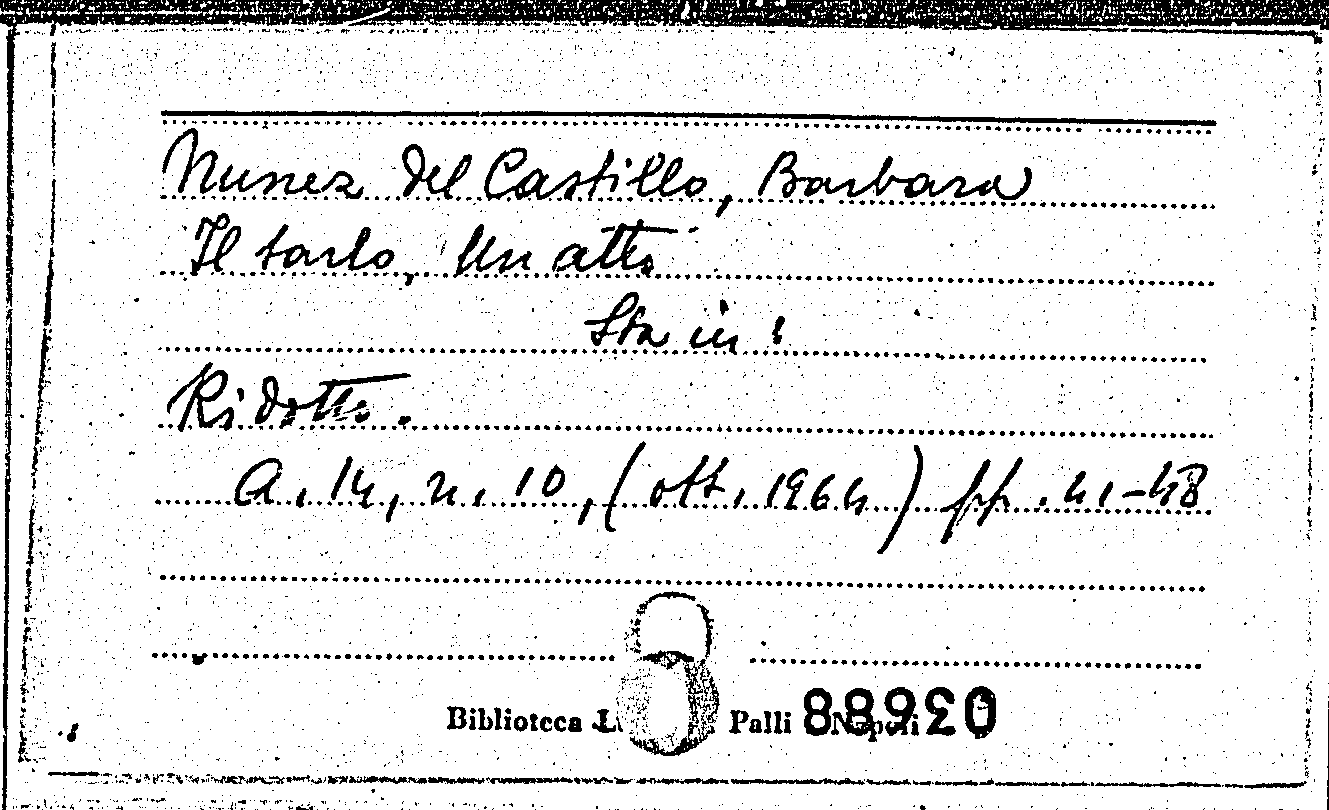 Nunez del Castillo, Barbara
Il tarlo, Un atto
Sta in:
Ridotto.
A. 14, n. 10, (ott. 1964) pp. 41-48
Biblioteca Palli Napoli